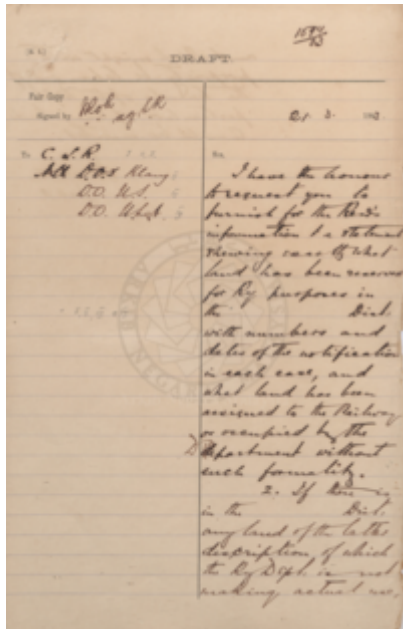 DRAFT.
Fair Copy
Signed by
21. 3.
To C. S. R.
D.O.s Klang
D.O. U.S.
D.O. U.L.
Sir,
I have the honour
to request you to
furnish for the Resd's
information a statement
shewing what
land has been reserved
for Ry purposes in
the Dist.
with numbers and
dates of the notification
in each case, and
what land has been
assigned to the Railway
or occupied by the
Department without
such formality.
2. If there is
in the Dist.
any land of the latter
description, of which
the Ry Dept. is not
making actual use,